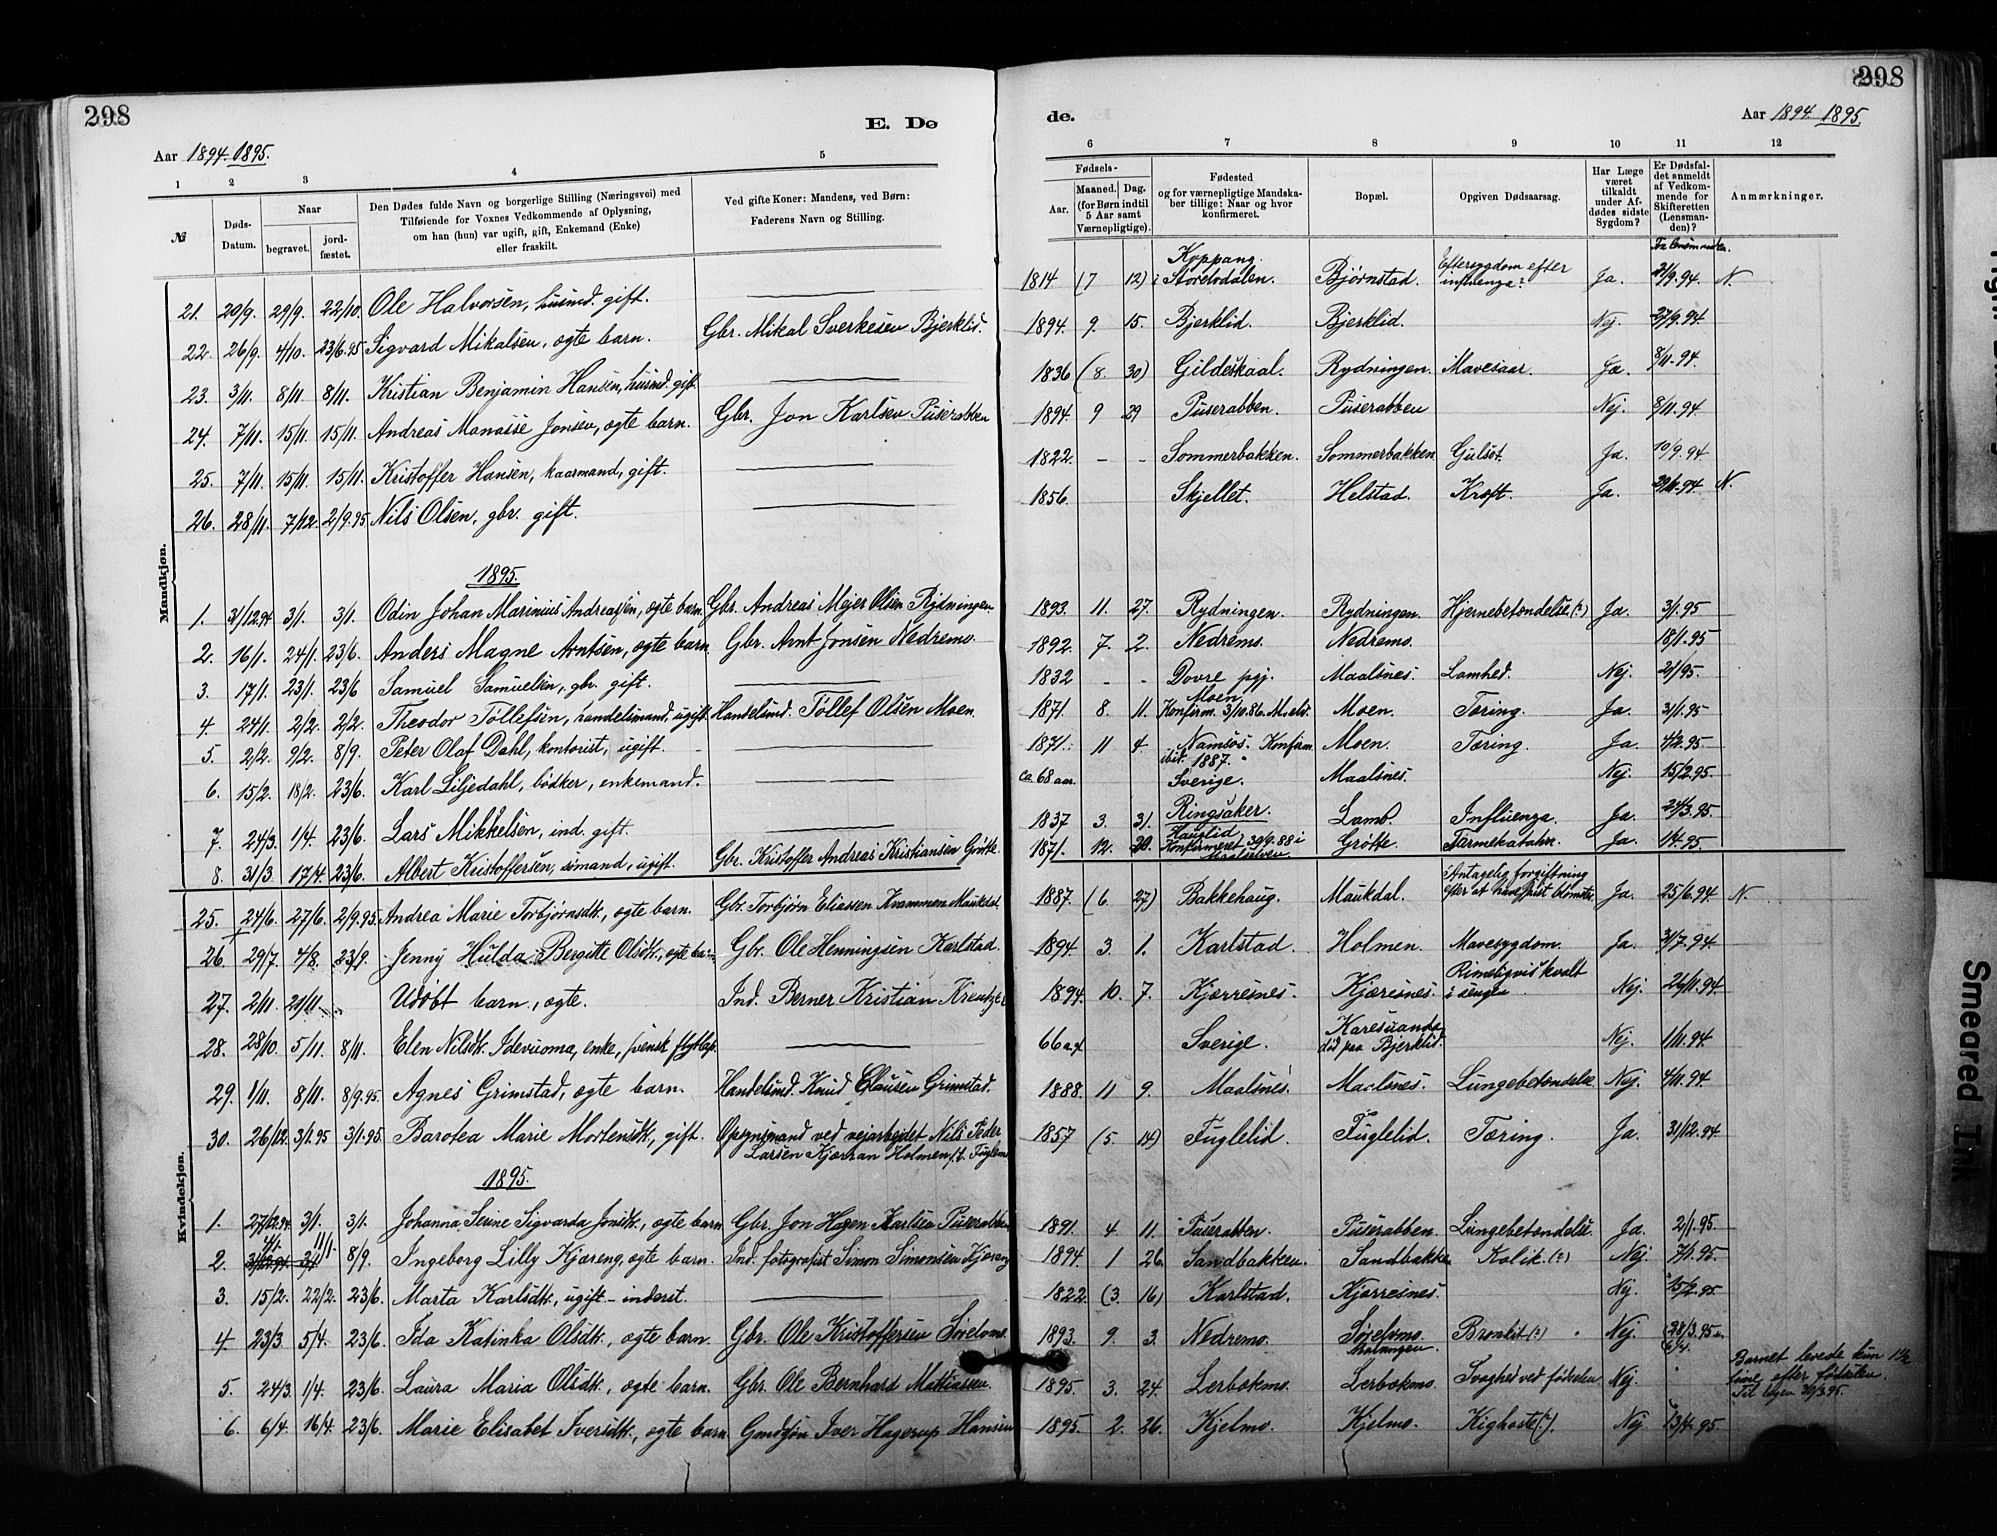 298
298
E. Dø
de.
Aar 1894. 1895.
Aar 1894. 1895.
1 2 3 4 5 6 7 8 9 10 11 12
№
Døds-Datum.
Naar
begravet.
jordfæstet.
Den Dødes fulde Navn og borgerlige Stilling (Næringsvei) med
Tilføiende for Voxnes Vedkommende af Oplysning,
om han (hun) var ugift, gift, Enkemand (Enke)
eller fraskilt.
Ved gifte Koner: Mandens, ved Børn:
Faderens Navn og Stilling.
Fødsels-
Aar.
Maaned. Dag.
(for Børn indtil
5 Aar samt
Værnepligtige).
Fødested
og for værnepligtige Mandskaber tillige: Naar og hvor
konfirmeret.
Bopæl.
Opgiven Dødsaarsag.
Har Læge
været
tilkaldt
under Afdødes sidste
Sygdom?
Er Dødsfaldet anmeldt
af Vedkommende for
Skifteretten
(Lensmanden)?
Anmærkninger.
Mandkjøn.
21. 20/9. 29/9. 22/10. Ole Halvorsen, husmd. gift. 1814 (7 12) Koppang i Storelvdalen. Bjørnstad. Eftersygdom efter influenza? Ja. Fra lensmanden. 21/9.94. N.
22. 26/9. 4/10. 23/6.95 Sigvard Mikalsen, ægte barn. Gbr. Mikal Sverkesen Bjerklid. 1894. 9. 15. Bjerklid. Bjerklid. Nej. 27/9.94.
23. 3/11. 8/11. 8/11. Kristian Benjamin Hansen, husmd. gift. 1836 (8. 30) Gildeskaal. Rydningen. Mavesaar. Ja. 8/11.94.
24. 7/11. 15/11. 15/11. Andreas Manasse Jonsen, ægte barn. Gbr. Jon Karlsen Puserabben 1894. 9 29 Puserabben. Puserabben Nej. 8/11.94
25. 7/11. 15/11. 15/11. Kristoffer Hansen, kaarmand, gift. 1822. - - Sommerbakken. Sommerbakken. Gulsot. Ja. 10/9.94
26. 28/11. 7/12. 2/9.95 Nils Olsen, gbr. gift. 1856. Skjellet. Helstad. Kræft. Ja. 29/11.94. N.
1895.
1. 31/12.94 3/1. 3/1. Odin Johan Marinius Andreassen, ægte barn. Gbr. Andreas Mejer Olsen Rydningen 1893. 11. 27. Rydningen. Rydningen. Hjernebetændelse (?) Ja. 3/1.95
2. 16/1. 24/1. 23/6. Anders Magne Arntsen, ægte barn. Gbr. Arnt Jonsen Nedremo. 1892. 7. 2. Nedremo. Nedremo. 18/1.95
3. 17/1. 23/1. 23/6 Samuel Samuelsen, gbr. gift. 1832 - - Dovre pgj. Maalsnes. Lamhed. Nej. 21/95.
4. 24/1. 2/2. 2/2. Theodor Tollefsen, handelsmand, ugift. Handelsmd. Tollef Olsen Moen. 1871. 8. 11. Moen Konfirm. 3/10.86. Moen. Tæring. Ja. 31/1.95
5. 2/2. 9/2. 8/9. Peter Olaf Dahl, kontorist, ugift. 1871. 11 4. Namsos. Konfirm. ibid. 1887. Moen. Tæring. Ja. 4/2.95
6. 15/2. 18/2. 23/6. Karl Liljedahl, bødker, enkemand. ca. 68 aar. Sverige. Maalsnes. Nej. 15/2.95.
7. 24/3. 1/4. 23/6. Lars Mikkelsen, ind. gift. 1837. 3. 31. Ringsaker. Lamb. Influenza. Ja. 24/3.95.
8. 31/3. 17/4. 23/6. Albert Kristoffersen, sømand, ugift. Gbr. Kristoffer Andreas Kristiansen Grøtte. 1871. 12. 20. Hauglid Konfirmeret 30/9.88 i Maalselven Grøtte. Tarmekatahr. Ja. 1/4.95.
Kvindekjøn.
25. 24/6. 27/6. 2/9.95. Andrea Marie Torbjørnsdtr., ægte barn. Gbr. Torbjørn Eliassen Kvammen Maukdal. 1887. (6. 27) Bakkehaug. Maukdal. Antagelig forgiftning efter at have spist blomster. Ja. 25/6.94. N.
26. 29/7. 4/8. 23/9. Jenny Hulda Bergitte Olsdtr., ægte barn Gbr. Ole Henningsen Karlstad. 1894. 3. 1. Karlstad. Holmen. Mavesygdom. Ja. 31/7.94
27. 2/11. 20/11. Udøbt barn, ægte. Ind. Berner Kristian Kreutzer 1894. 10. 7. Kjærresnes. Kjæresnes. Rimeligvis kvalt i sengen Nej. 20/11.94
28. 28/10. 5/11. 8/11. Elen Nilsdtr. Idevuoma, enke, svensk flytlap. 66 aar Sverige. Karesuando, død paa Bjerklid. Nej. 1/11.94
29. 1/11. 8/11. 8/9.95. Agnes Grimstad, ægte barn. Handelsmd. Knud Clausen Grimstad. 1888. 11 9. Maalsnes. Maalsnes. Lungebetændelse Nej. 4/11.94
30. 26/12. 3/1.95 3/1.95. Barotea Marie Mortensdtr., gift. Opsynsmand ved vejarbejdet Nils Peder Larsen Kjærran Holmen, f.t. Fuglemo 1857 (5. 14) Fuglelid. Fuglelid. Tæring. Ja. 31/12.94.
1895.
1. 27/12.94. 3/1. 3/1. Johanna Serine Sigvarda Jonsdtr., ægte barn. Gbr. Jon Hagen Karlsen Puserabben 1891. 4. 11. Puserabben. Puserabben. Lungebetændelse Ja. 2/1.95
2. 4/1. 11/1. 8/9. Ingeborg Lilly Kjæreng, ægte barn. Ind. fotografist Simon Simonsen Kjæreng 1894. 1 26. Sandbakken. Sandbakken Kolik (?) Nej. 7/1.95.
3. 15/2. 22/2. 23/6. Marta Karlsdtr., ugift - inderst. 1822. (3. 16) Karlstad. Kjærresnes. Nej. 15/2.95
4. 23/3 5/4. 23/6. Ida Katinka Olsdtr., ægte barn. Gbr. Ole Kristoffersen Sørelvmo. 1893. 9. 3. Nedremo. Sørelvmo Malangen. Bronkit (?) Nej. 28/3.95 6/4.
5. 24/3. 1/4. 23/6. Laura Maria Olsdtr., ægte barn. Gbr. Ole Bernhard Mathiassen. 1895. 3. 24. Lerbokmo. Lerbokmo. Svaghed ved fødselen. Nej. Barnet levede kun 1½ time efter fødselen. Til lægen 30/3.95.
6. 6/4. 16/4. 23/6. Marie Elisabet Iversdtr., ægte barn. Gmdsøn Iver Hagerup Hansen 1895. 2. 26. Kjelmo. Kjelmo. Kighoste (?). Nej. 13/4.95
Smeared Ink